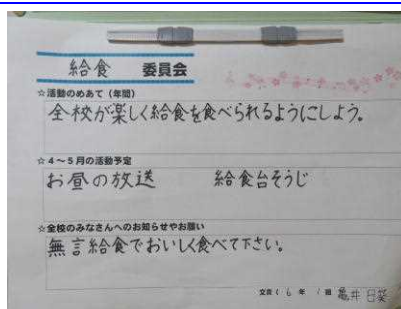 給食 委員会
☆活動のめあて(年間)
全校が楽しく給食を食べられるようにしよう。
☆4～5月の活動予定
お昼の放送 給食台そうじ
☆全校のみなさんへのお知らせやお願い
無言給食でおいしく食べて下さい。
文責( 6 年 1 組 亀井